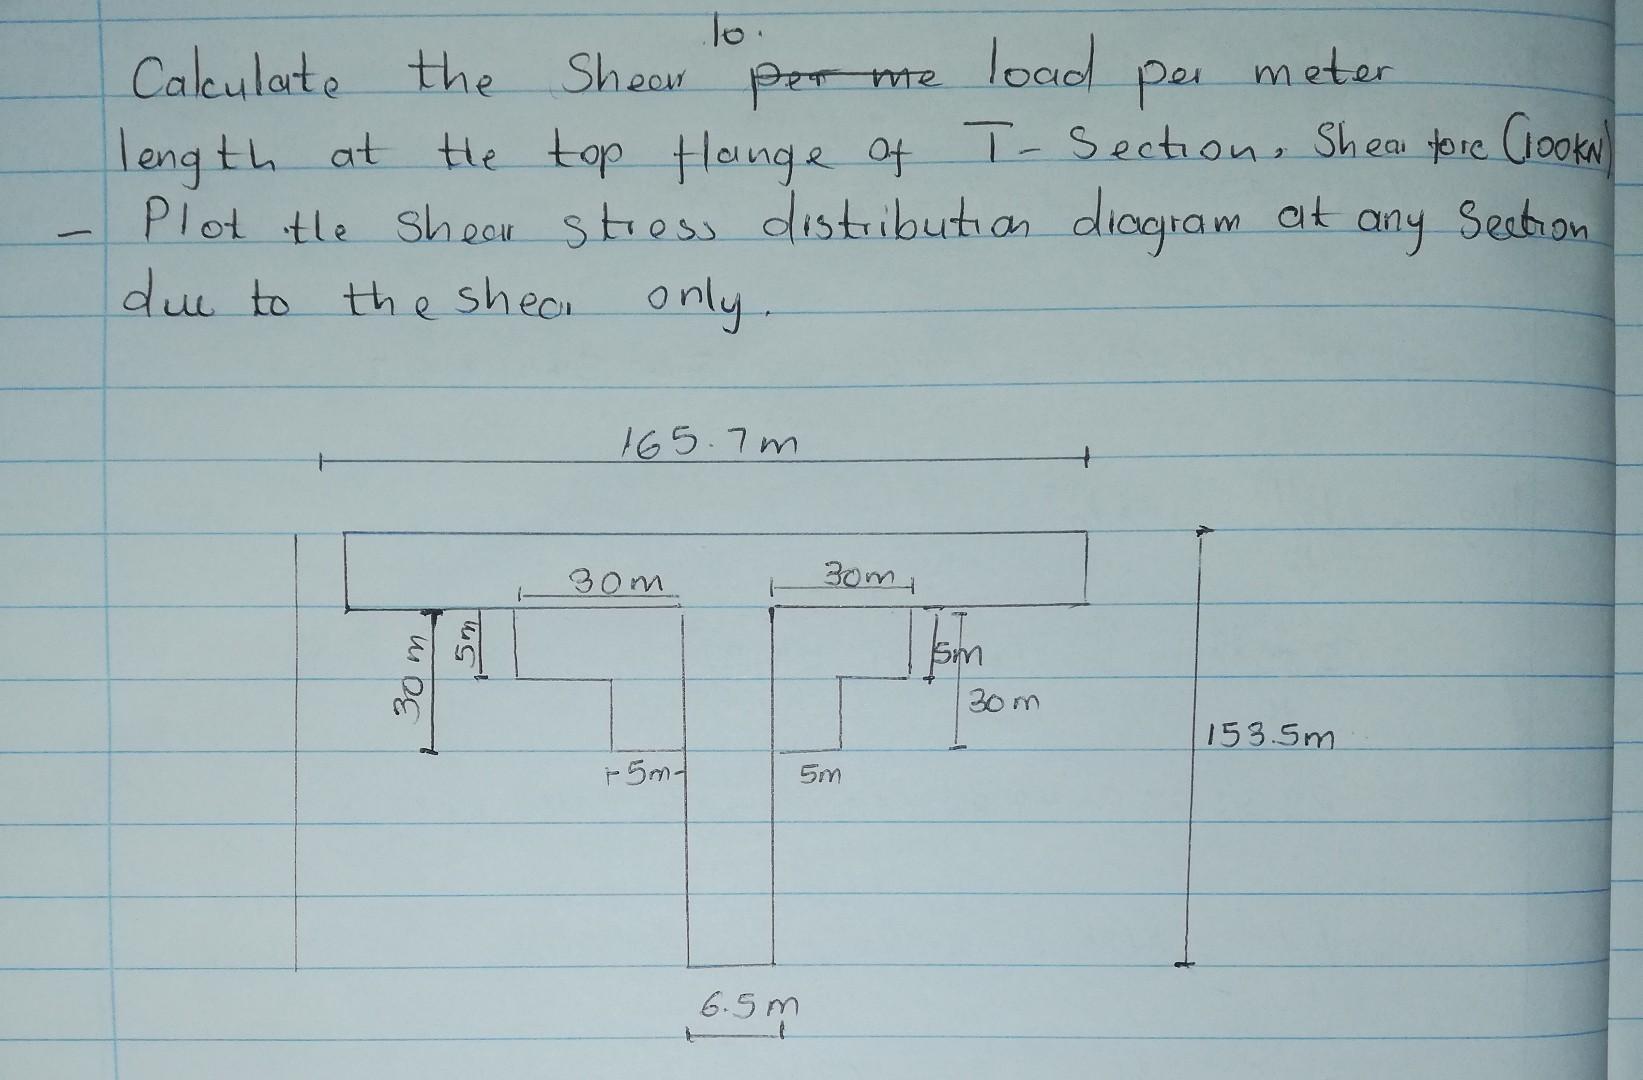 10.
Calculate the Shear per me load per meter
length at the top flange of T- Section, Shear forc (100KN)
- Plot the Shear stress distribution diagram at any Section
due to the shear only.
165.7m
30m 30m
30m 5m 5m
30m
153.5m
5m 5m
6.5m